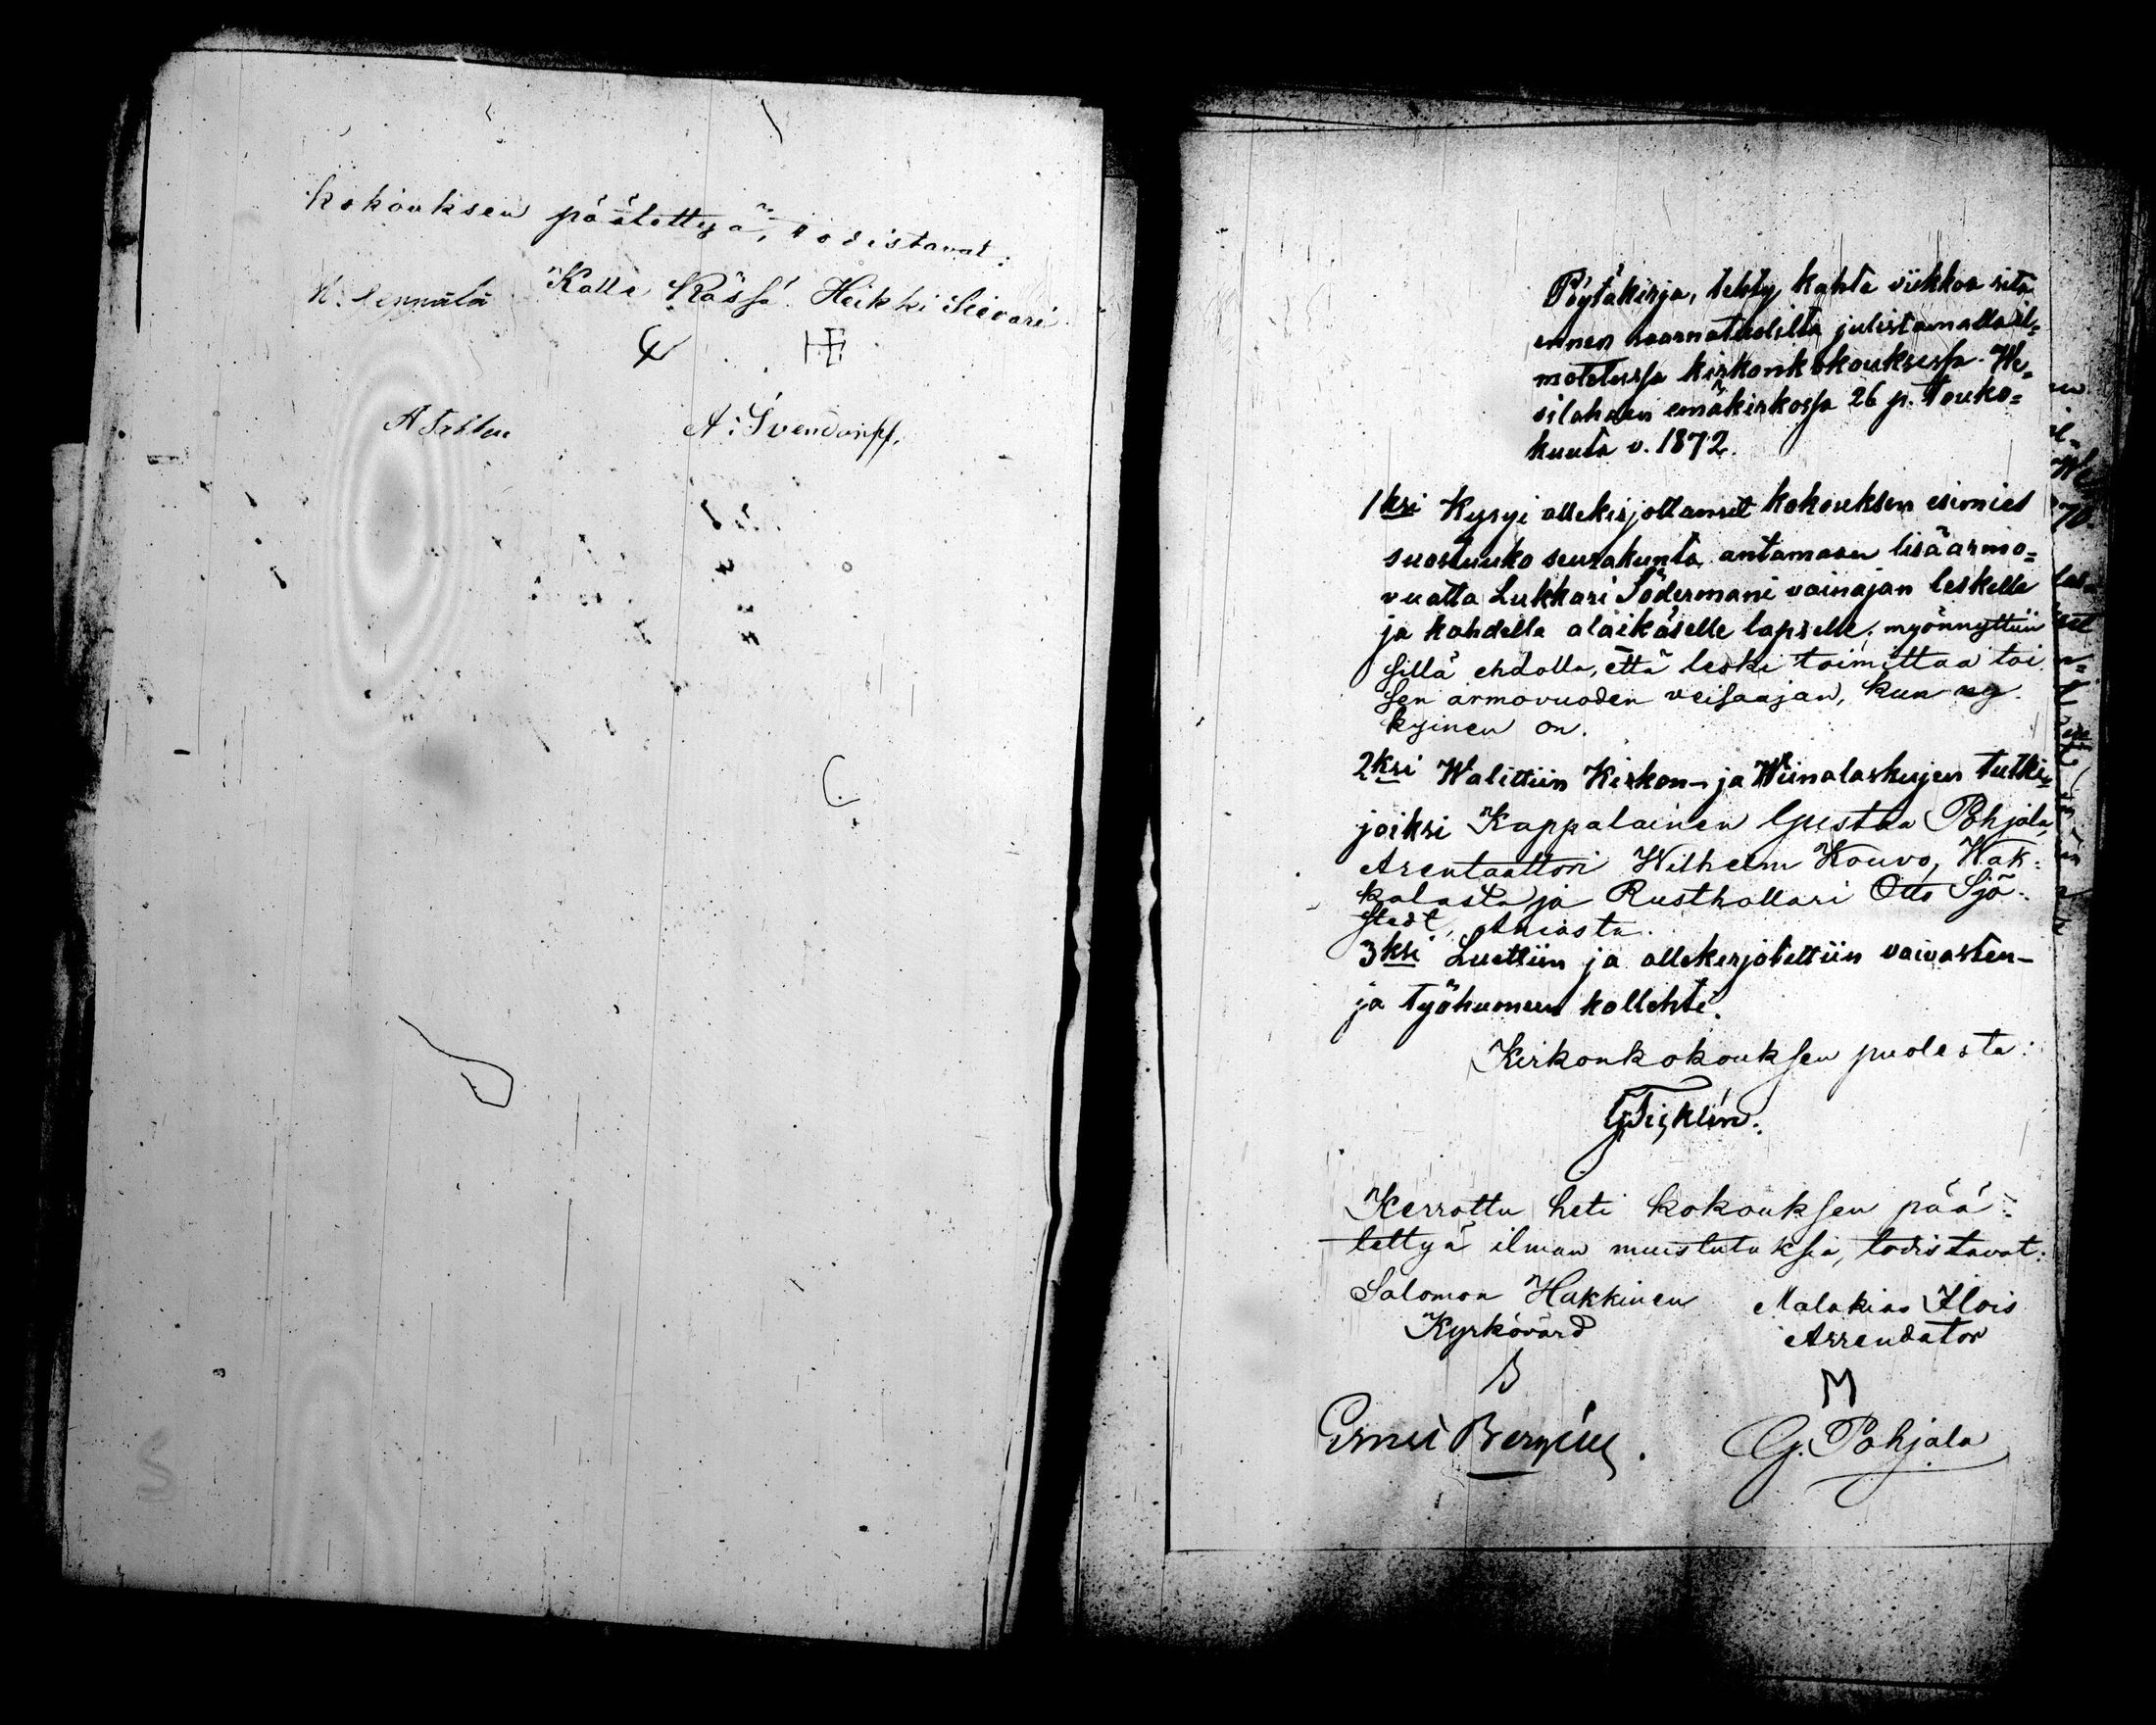 kokouksen päätettyä, todistavat:
Kalle Kässä Heikki Sievari
H. Seppälä
HE
A. Svendorff.
Pöytäkirja, tehty kahta viikkoa sitä
ennen saarnatuolilta julistamalla il=
motetussa kirkonkokouksessa We=
silahden emäkirkossa 26 p. Touko=
kuuta v. 1872.
1ksi Kysyi allekirjottanut kokouksen esimies
suostuuko seurakunta antamaan lisäarmo=
vuotta Lukkari Södermani vainajan leskelle
ja kahdelle alaikäselle lapselle; myönnyttiin
sillä ehdolla, että leski toimittaa toi
sen armovuoden veisaajan, kun ny
kyinen on.
2ksi Walittiin Kirkon- ja Wiinalaskujen tutki=
joiksi Kappalainen Gustaa Pohjala,
Arentaattori Wilhelm Kouvo, Wak:
kalasta ja Rusthollari Otto Sjö:
stedt,
3ksi Luettiin ja allekirjotettiin vaivasten-
ja työhuoneen kollehti.
Kirkonkokouksen puolesta:
Kerrottu heti kokouksen pää:
tettyä ilman muistutuksia, todistavat:
Salomon Hakkinen Malakias Ilois
Kyrkovärd Arrendator
M
G. Pohjala